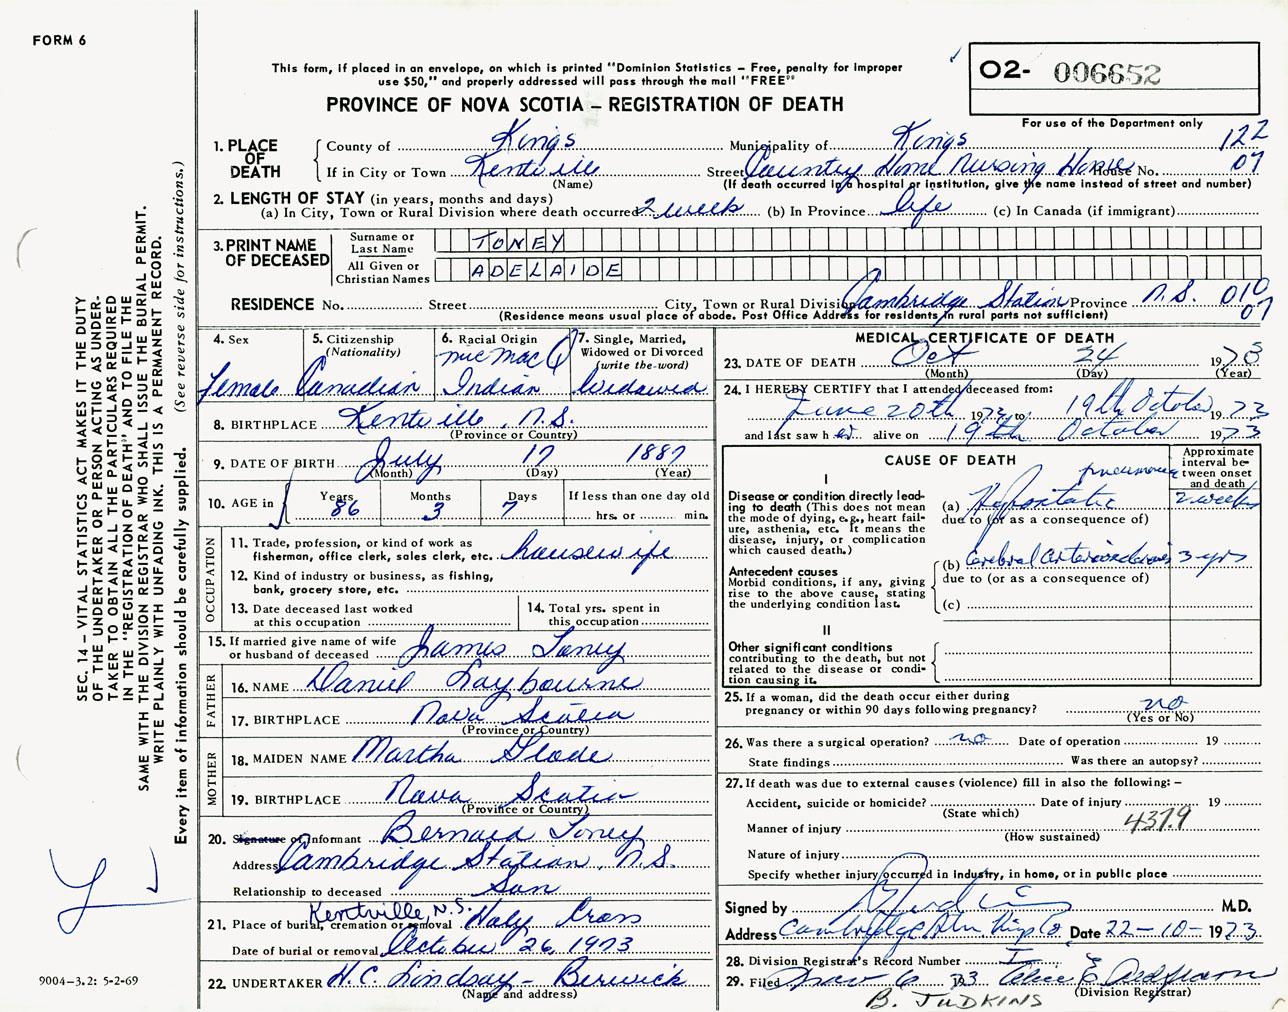 FORM 6
This form, if placed in an envelope, on which is printed "Dominion Statistics – Free, penalty for improper
use $50," and properly addressed will pass through the mail "FREE"
PROVINCE OF NOVA SCOTIA – REGISTRATION OF DEATH
O2- 006652
For use of the Department only
1. PLACE OF DEATH
County of Kings Municipality of Kings 122
If in City or Town Kentville Street Country Home Nursing Home House No. 07
(Name) (If death occurred in a hospital or institution, give the name instead of street and number)
2. LENGTH OF STAY (in years, months and days)
(a) In City, Town or Rural Division where death occurred 2 week (b) In Province life (c) In Canada (if immigrant)
3. PRINT NAME OF DECEASED
Surname or Last Name TONEY
All Given or Christian Names ADELAIDE
RESIDENCE No. Street City, Town or Rural Division Cambridge Station Province N.S. 010
(Residence means usual place of abode. Post Office Address for residents in rural parts not sufficient) 07
4. Sex Female
5. Citizenship (Nationality) Canadian
6. Racial Origin micmac Indian
7. Single, Married, Widowed or Divorced (write the word) Widowed
8. BIRTHPLACE Kentville, N.S.
(Province or Country)
9. DATE OF BIRTH July 17 1887
(Month) (Day) (Year)
10. AGE in Years 86 Months 3 Days 7 If less than one day old
hrs. or min.
OCCUPATION
11. Trade, profession, or kind of work as
fisherman, office clerk, sales clerk, etc. housewife
12. Kind of industry or business, as fishing,
bank, grocery store, etc.
13. Date deceased last worked
at this occupation
14. Total yrs. spent in
this occupation
15. If married give name of wife
or husband of deceased James Toney
FATHER
16. NAME Daniel Laybourne
17. BIRTHPLACE Nova Scotia
(Province or Country)
MOTHER
18. MAIDEN NAME Martha Glode
19. BIRTHPLACE Nova Scotia
(Province or Country)
20. Signature of Informant Bernard Toney
Address Cambridge Station, N.S.
Relationship to deceased Son
Kentville, N.S.
21. Place of burial, cremation or removal Holy Cross
Date of burial or removal October 26, 1973
22. UNDERTAKER H.C. Lindsay – Berwick
(Name and address)
MEDICAL CERTIFICATE OF DEATH
23. DATE OF DEATH Oct 24 1973
(Month) (Day) (Year)
24. I HEREBY CERTIFY that I attended deceased from:
June 20th 1973 to 19th October 1973
and last saw h er alive on 19th October 1973
CAUSE OF DEATH
Approximate interval between onset and death
I
Disease or condition directly leading to death (This does not mean the mode of dying, e.g., heart failure, asthenia, etc. It means the disease, injury, or complication which caused death.)
(a) Hypostatic pneumonia 2 weeks
due to (or as a consequence of)
Antecedent causes
Morbid conditions, if any, giving rise to the above cause, stating the underlying condition last.
(b) Cerebral arteriosclerosis 3 yrs
due to (or as a consequence of)
(c)
II
Other significant conditions
contributing to the death, but not related to the disease or condition causing it.
25. If a woman, did the death occur either during
pregnancy or within 90 days following pregnancy? no
(Yes or No)
26. Was there a surgical operation? no Date of operation 19
State findings Was there an autopsy?
27. If death was due to external causes (violence) fill in also the following: –
Accident, suicide or homicide? Date of injury 19
(State which)
Manner of injury 437.9
(How sustained)
Nature of injury
Specify whether injury occurred in industry, in home, or in public place
Signed by M.D.
Address Cambridge Stn. Kings Co. Date 22–10–1973
28. Division Registrar's Record Number
29. Filed 6 1973
(Division Registrar)
B. JUDKINS
SEC. 14 – VITAL STATISTICS ACT MAKES IT THE DUTY
OF THE UNDERTAKER OR PERSON ACTING AS UNDER-
TAKER TO OBTAIN ALL THE PARTICULARS REQUIRED
IN THE "REGISTRATION OF DEATH" AND TO FILE THE
SAME WITH THE DIVISION REGISTRAR WHO SHALL ISSUE THE BURIAL PERMIT.
WRITE PLAINLY WITH UNFADING INK. THIS IS A PERMANENT RECORD.
Every item of information should be carefully supplied. (See reverse side for instructions.)
9004–3.2: 5-2-69